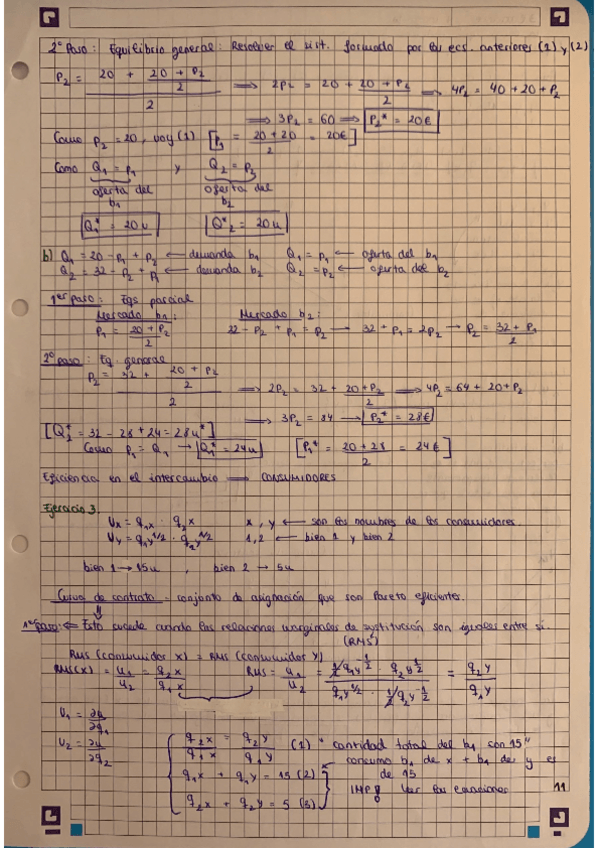 2º Paso: Equilibrio general: Resolver el sist. formado por las ecs. anteriores (1) y (2)
P₂ = (20 + (20 + P₂)/2)/2 ⟹ 2P₂ = 20 + (20 + P₂)/2 ⟹ 4P₂ = 40 + 20 + P₂
⟹ 3P₂ = 60 ⟹ P₂* = 20€
Como P₂ = 20, voy (1) [P₁ = (20 + 20)/2 = 20€]
Como Q₁ = P₁ y Q₂ = P₂
oferta del b₁ oferta del b₂
Q₁* = 20u Q₂* = 20u
b) Q₁ = 20 - P₁ + P₂ ← demanda b₁ Q₁ = P₁ ← oferta del b₁
Q₂ = 32 - P₂ + P₁ ← demanda b₂ Q₂ = P₂ ← oferta del b₂
1er paso: Eqs parcial
Mercado b₁: Mercado b₂:
P₁ = (20 + P₂)/2 32 - P₂ + P₁ = P₂ → 32 + P₁ = 2P₂ → P₂ = (32 + P₁)/2
2º paso: Eq. general
P₂ = (32 + (20 + P₂)/2)/2 ⟹ 2P₂ = 32 + (20 + P₂)/2 ⟹ 4P₂ = 64 + 20 + P₂
⟹ 3P₂ = 84 → P₂* = 28€
[Q₂* = 32 - 28 + 24 = 28u*]
Como P₁ = Q₁ → Q₁* = 24u [P₁* = (20 + 28)/2 = 24€]
Eficiencia en el intercambio ⟹ CONSUMIDORES
Ejercicio 3.
Ux = q₁x · q₂x x, y ← son los nombres de los consumidores.
Uy = q₁y^1/2 · q₂y^1/2 1,2 ← bien 1 y bien 2
bien 1 → 15u, bien 2 → 5u
Curva de contrato = conjunto de asignación que son Pareto eficientes.
1er paso: ← Esto sucede cuando las relaciones marginales de sustitución son iguales entre sí.
(RMS)
RMS (consumidor X) = RMS (consumidor Y)
RMS(X) = U₁/U₂ = q₂x/q₁x RMS = U₁/U₂ = (1/2 q₁y^-1/2 · q₂y^1/2)/(q₁y^1/2 · 1/2 q₂y^-1/2) = q₂y/q₁y
U₁ = ∂u/∂q₁
U₂ = ∂u/∂q₂
q₂x/q₁x = q₂y/q₁y (1) "cantidad total del b₁ son 15"
q₁x + q₁y = 15 (2) consumo b₁ de x + b₁ de y es de 15
q₂x + q₂y = 5 (3) IMP!
11